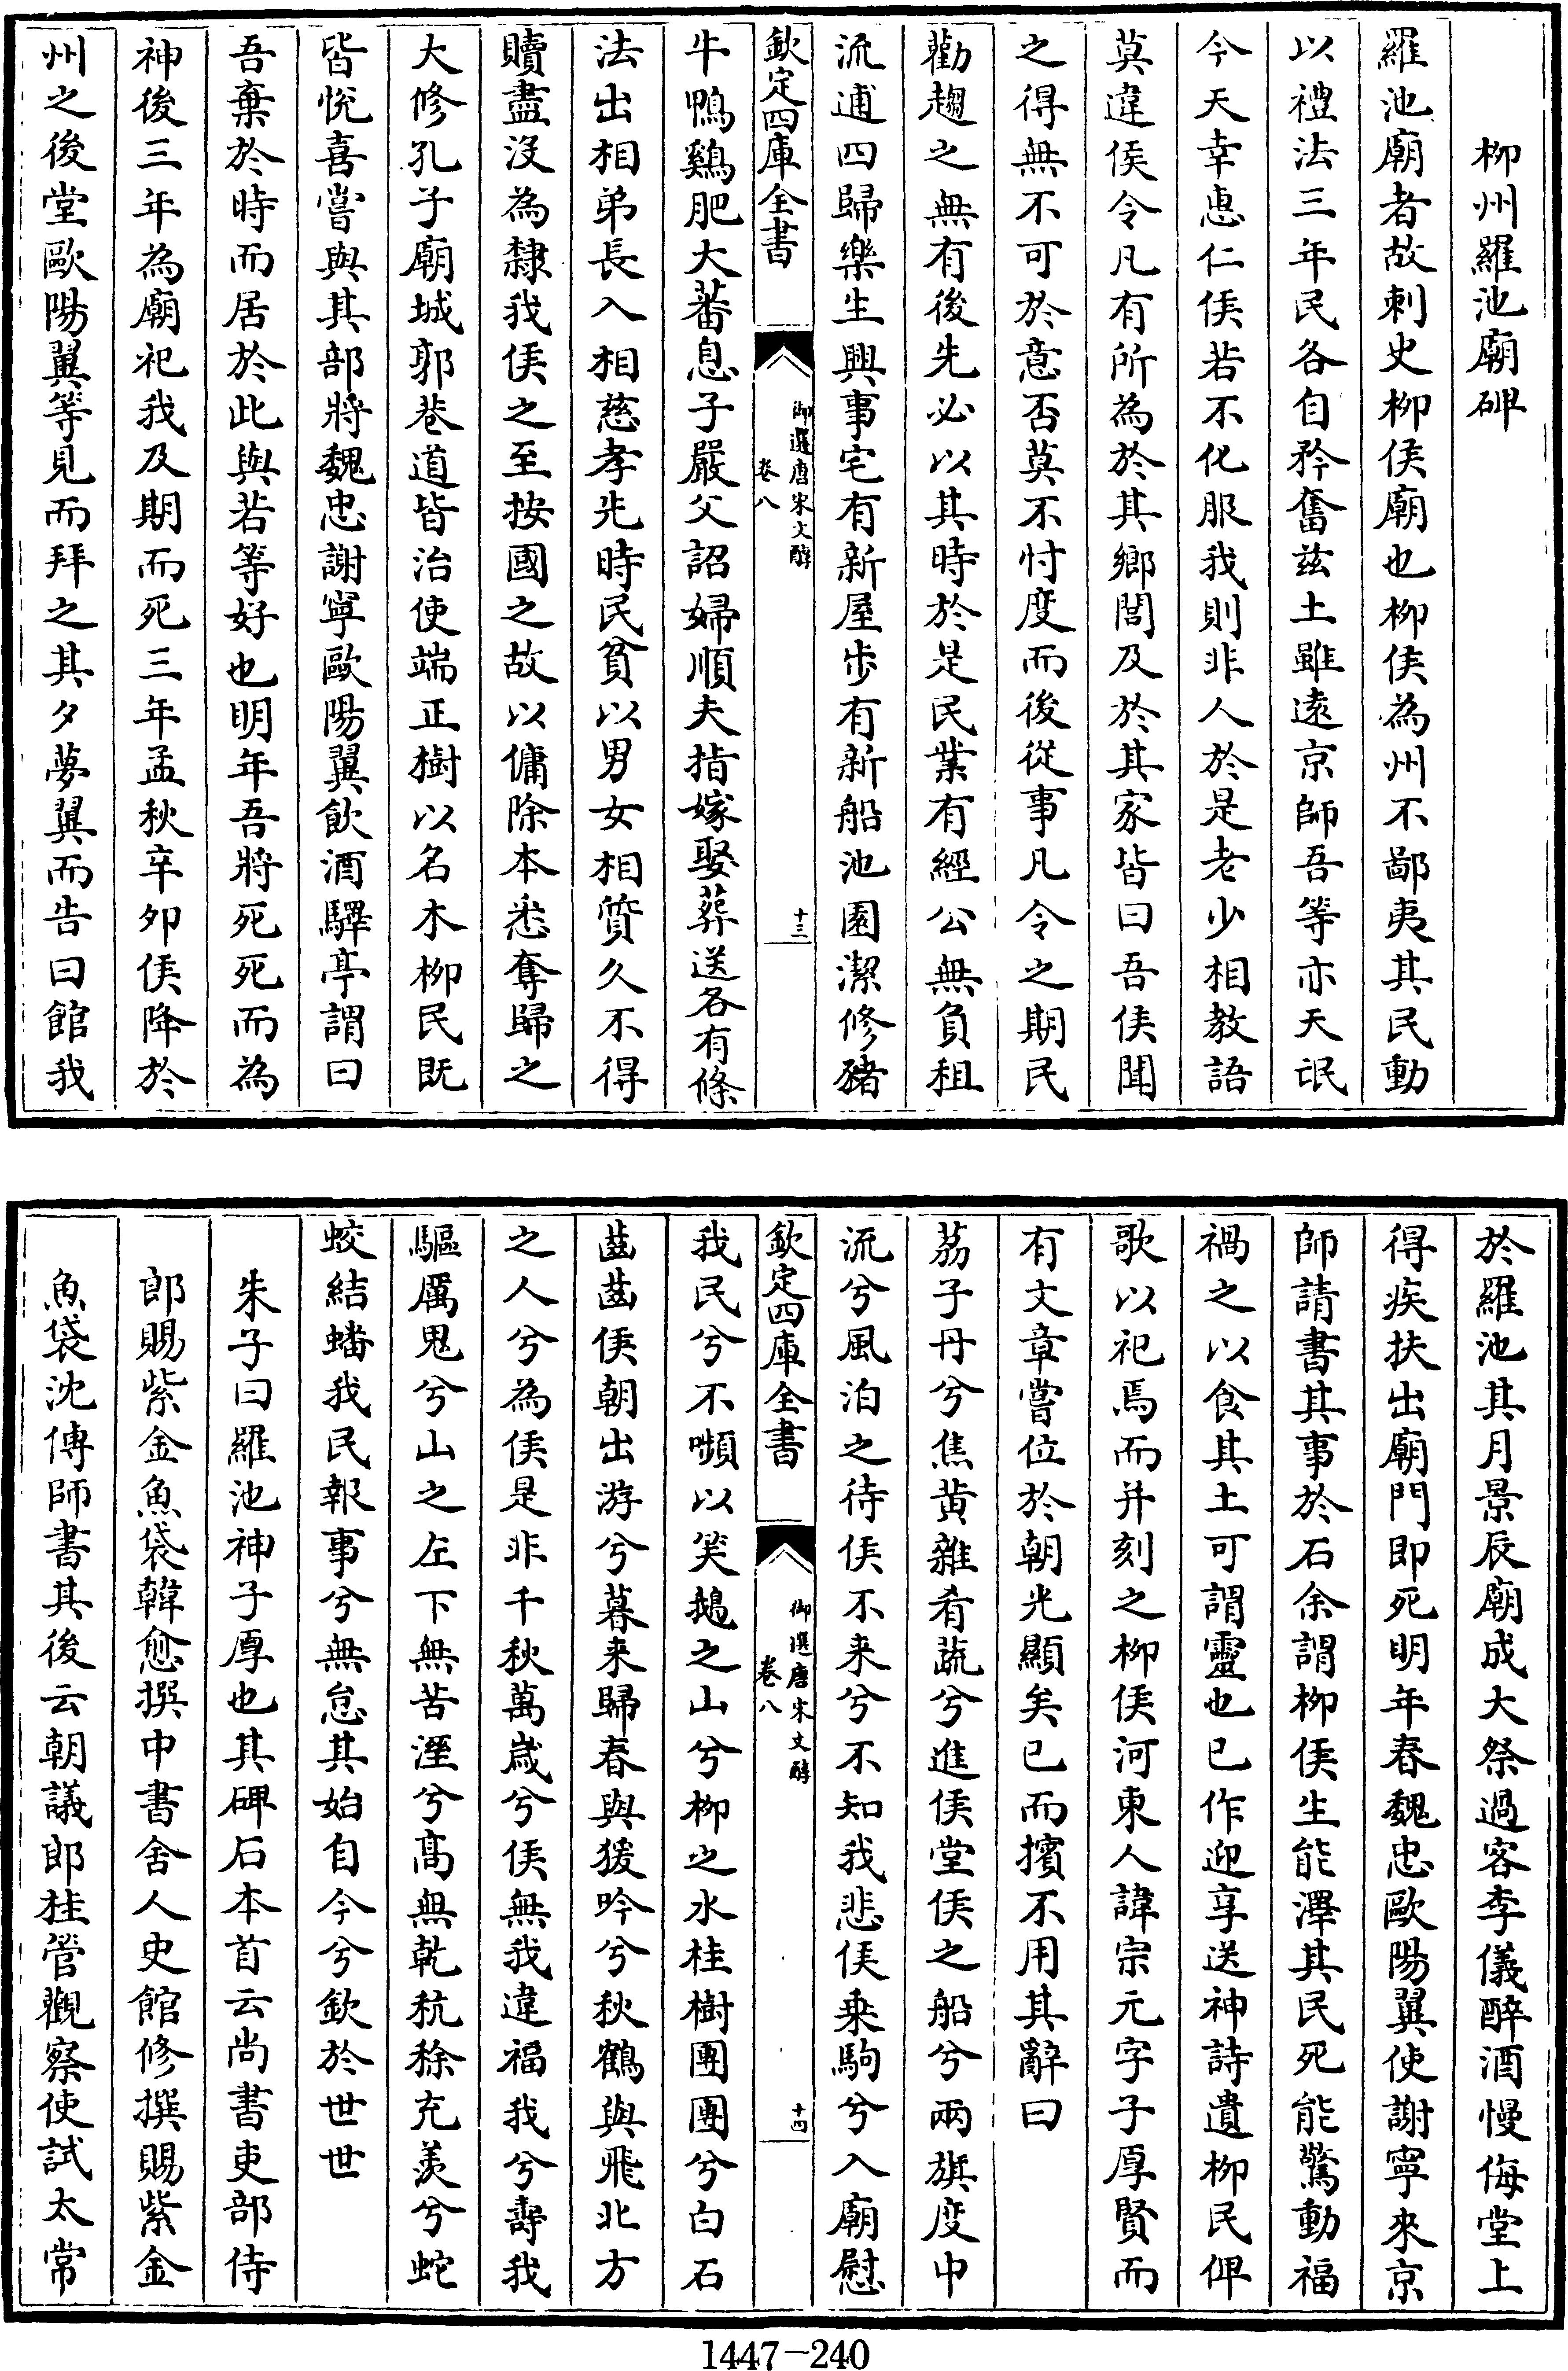 柳州羅池廟碑
羅池廟者故刺史柳侯廟也柳侯為州不鄙夷其民動
以禮法三年民各自矜奮兹土雖遠京師吾等亦天氓
今天幸惠仁侯若不化服我則非人於是老少相教語
莫違侯令凡有所為於其鄉閭及於其家皆曰吾侯聞
之得無不可於意否莫不忖度而後從事凡令之期民
勸趨之無有後先必以其時於是民業有經公無負租
流逋四歸樂生興事宅有新屋步有新船池園潔修豬
欽定四庫全書
御選唐宋文醇
卷八
十三
牛鴨鷄肥大蕃息子嚴父詔婦順夫指嫁娶葬送各有條
法出相弟長入相慈孝先時民貧以男女相質久不得
贖盡沒為隸我侯之至按國之故以傭除本悉奪歸之
大修孔子廟城郭巷道皆治使端正樹以名木柳民既
皆悅喜嘗與其部將魏忠謝寧歐陽翼飲酒驛亭謂曰
吾棄於時而居於此與若等好也明年吾將死死而為
神後三年為廟祀我及期而死三年孟秋辛卯侯降於
州之後堂歐陽翼等見而拜之其夕夢翼而告曰館我
於羅池其月景辰廟成大祭過客李儀醉酒慢侮堂上
得疾扶出廟門即死明年春魏忠歐陽翼使謝寧來京
師請書其事於石余謂柳侯生能澤其民死能驚動福
禍之以食其土可謂靈也已作迎享送神詩遺柳民俾
歌以祀焉而并刻之柳侯河東人諱宗元字子厚賢而
有文章嘗位於朝光顯矣已而擯不用其辭曰
荔子丹兮焦黄雜肴蔬兮進侯堂侯之船兮兩旗度中
流兮風泊之待侯不来兮不知我悲侯乗駒兮入廟慰
欽定四庫全書
御選唐宋文醇
卷八
十四
我民兮不嚬以笑鵝之山兮柳之水桂樹團團兮白石
齒齒侯朝出游兮暮来歸春與猨吟兮秋鶴與飛北方
之人兮為侯是非千秋萬嵗兮侯無我違福我兮壽我
驅厲鬼兮山之左下無苦溼兮髙無乾秔稌充羡兮蛇
蛟結蟠我民報事兮無怠其始自今兮欽於世世
朱子曰羅池神子厚也其碑石本首云尚書吏部侍
郎賜紫金魚袋韓愈撰中書舍人史館修撰賜紫金
魚袋沈傳師書其後云朝議郎桂管觀察使試太常
1447-240